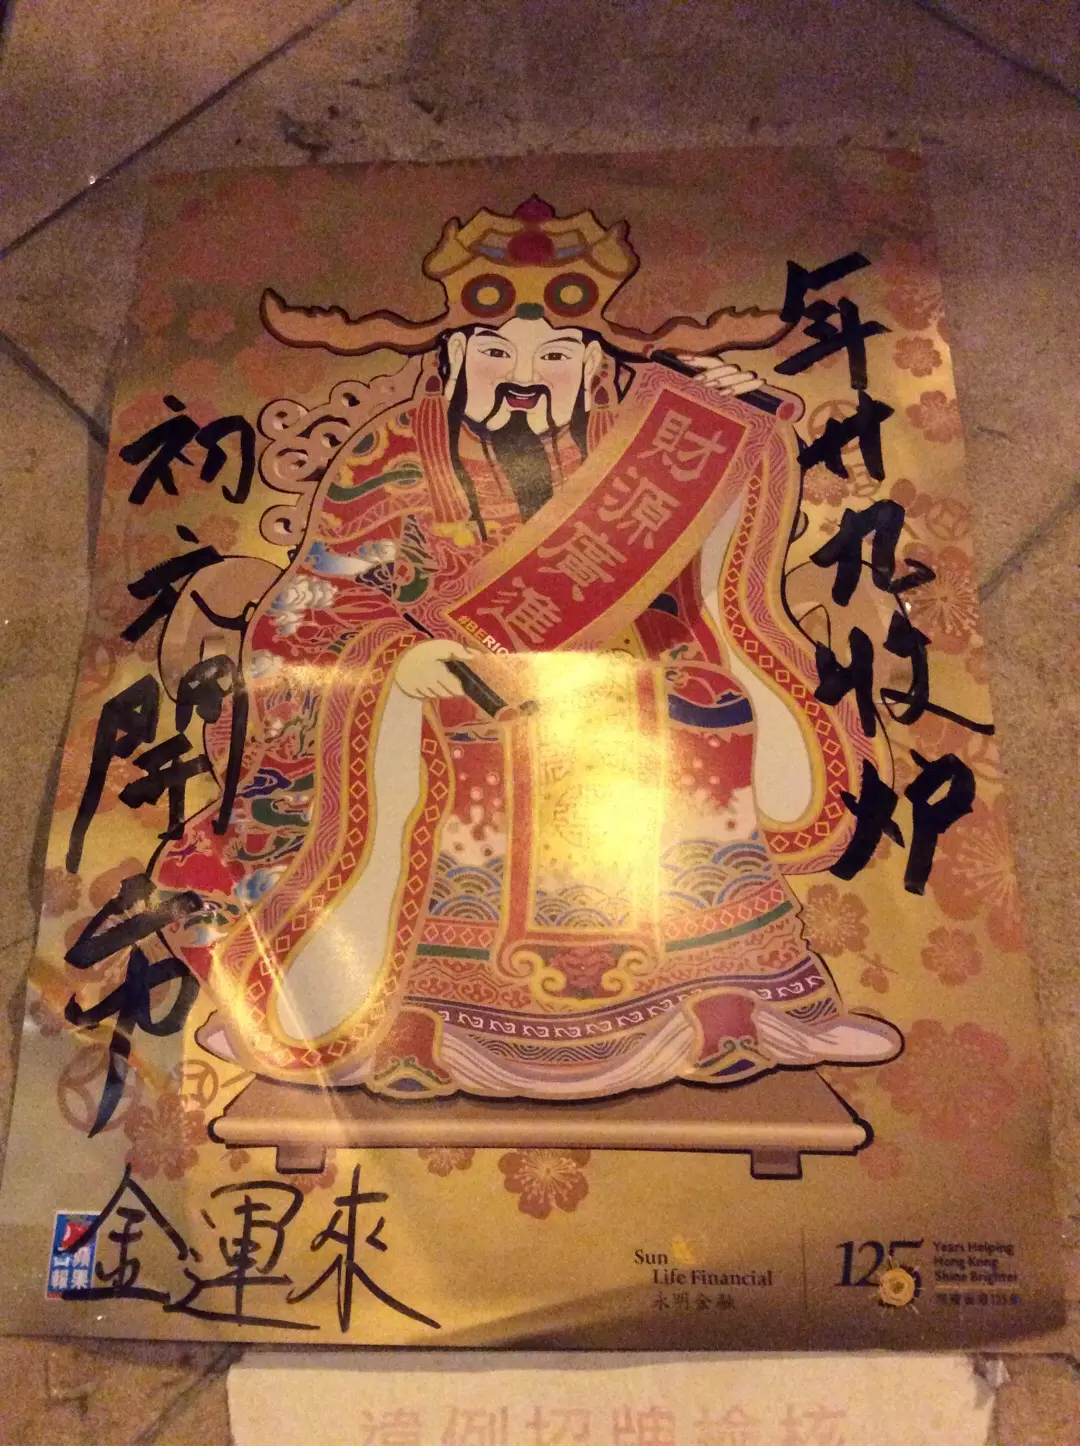 年廿九收炉
初六開市
財源廣進
金運來
Sun
Life Financial
永明金融
125
Years Helping
Hong Kong
Shine Brighter
違例招牌